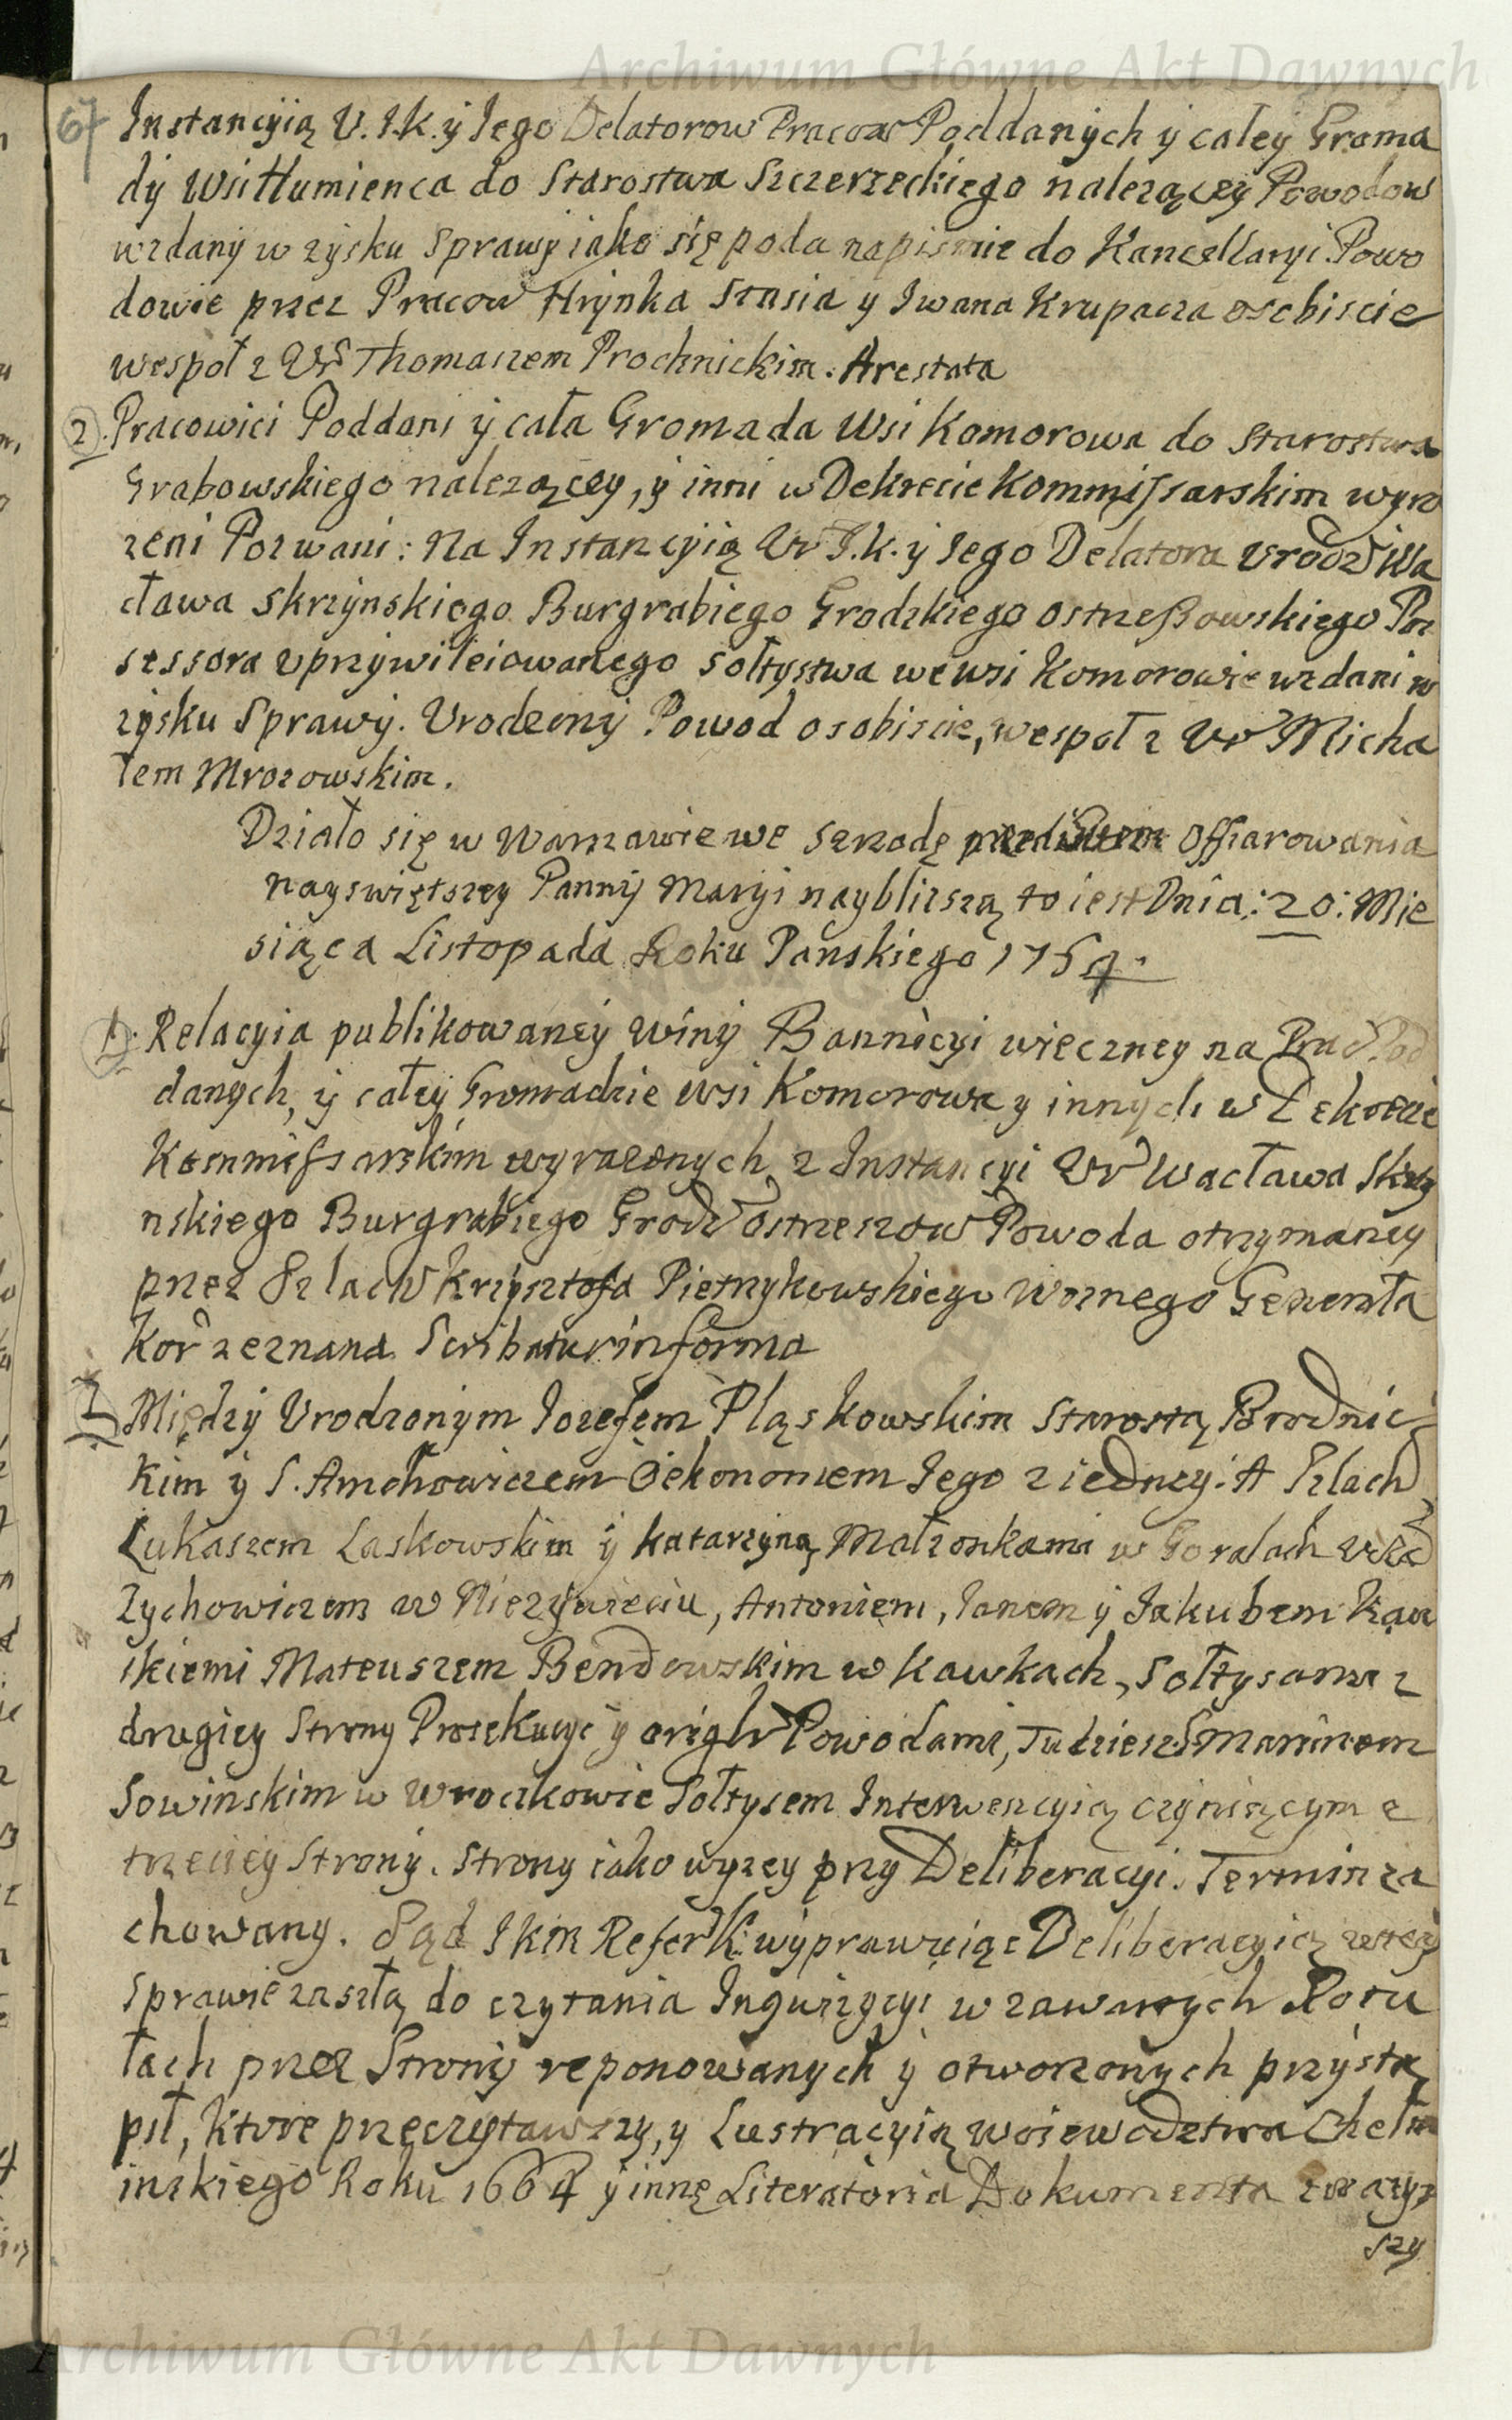 Archiwum Główne Akt Dawnych
67 Instancyią U. I.K. y Iego Delatorow Pracow Poddanych y całey Groma
dy Wsi Tłumienca do Starostwa Szczerzeckiego nalezącey Powodow
wzdany w zysku Sprawy iako się poda napismie do Kancellaryi. Powo
dowie przez Pracow Hrynka Stasia y Iwana Krupacza osobiscie
wespoł z Ur Thomaszem Prochnickim. Arestata
2. Pracowici Poddani y cała Gromada Wsi Komorowa do Starostwa
Grabowskiego nalezącey, y inni w Dekrecie Kommissarskim wyra
zeni Pozwani: Na Instancyią Ur I.K. y Iego Delatora Urodz Wa
cława Skrzynskiego Burgrabiego Grodzkiego Ostrzeszowskiego Po
sessora uprzywileiowanego Sołtystwa we wsi Komorowie wzdani w
zysku Sprawy. Urodzony Powod osobiscie, wespoł z Ur Micha
łem Mrozowskim.
Działo się w Warszawie we Srzodę przed Offiarowania
nayswiętszey Panny Maryi naybliszszą to iest Dnia: 20: Mie
siąca Listopada Roku Panskiego 1754.
1. Relacyia publikowaney winy Bannicyi wieczney na Prac Pod
danych, y całey Gromadzie wsi Komorowa y innych w Dekrecie
Kommissarskim wyrazonych z Instancyi Ur Wacława Skrzy
nskiego Burgrabiego Grodz Ostrzeszow Powoda otrzymaney
przez Szlach Krzysztofa Pietrzykowskiego Woznego Generała
Kor zeznana Scribatur in forma
I Między Urodzonym Iozefem Pląskowskim Starostą Brodnic
kim y S. Amchowiczem Oiekonomem Iego z iedney: A Szlach
Łukaszem Laskowskim y Katarzyną Małzonkami w Goralach
Zychowiczem w Niezywięciu, Antoniem, Ianem y Iakubem Kaw
skiemi Mateuszem Bendowskim w Kawkach, Sołtysami z
drugiey Strony Prosekucyi y origlr Powodami, Tudziesz S Marcinem
Sowinskim w Wrockowie Sołtysem Interwencyią czyniącym z
trzeciey Strony. Strony iako wyzey przy Deliberacyi. Termin za
chowany. Sąd IKM Refer K: wyprawuiąc Deliberacyią w tey
Sprawie zaszłą do czytania Inquizycyi w zawartych Rotu
łach przez Strony reponowanych y otworzonych przystą
pił, ktore przeczytawszy, y Lustracyią woiewodztwa Chełm
inskiego Roku 1664 y innę Literatoria Dokumenta zwazyw
szy
Archiwum Główne Akt Dawnych